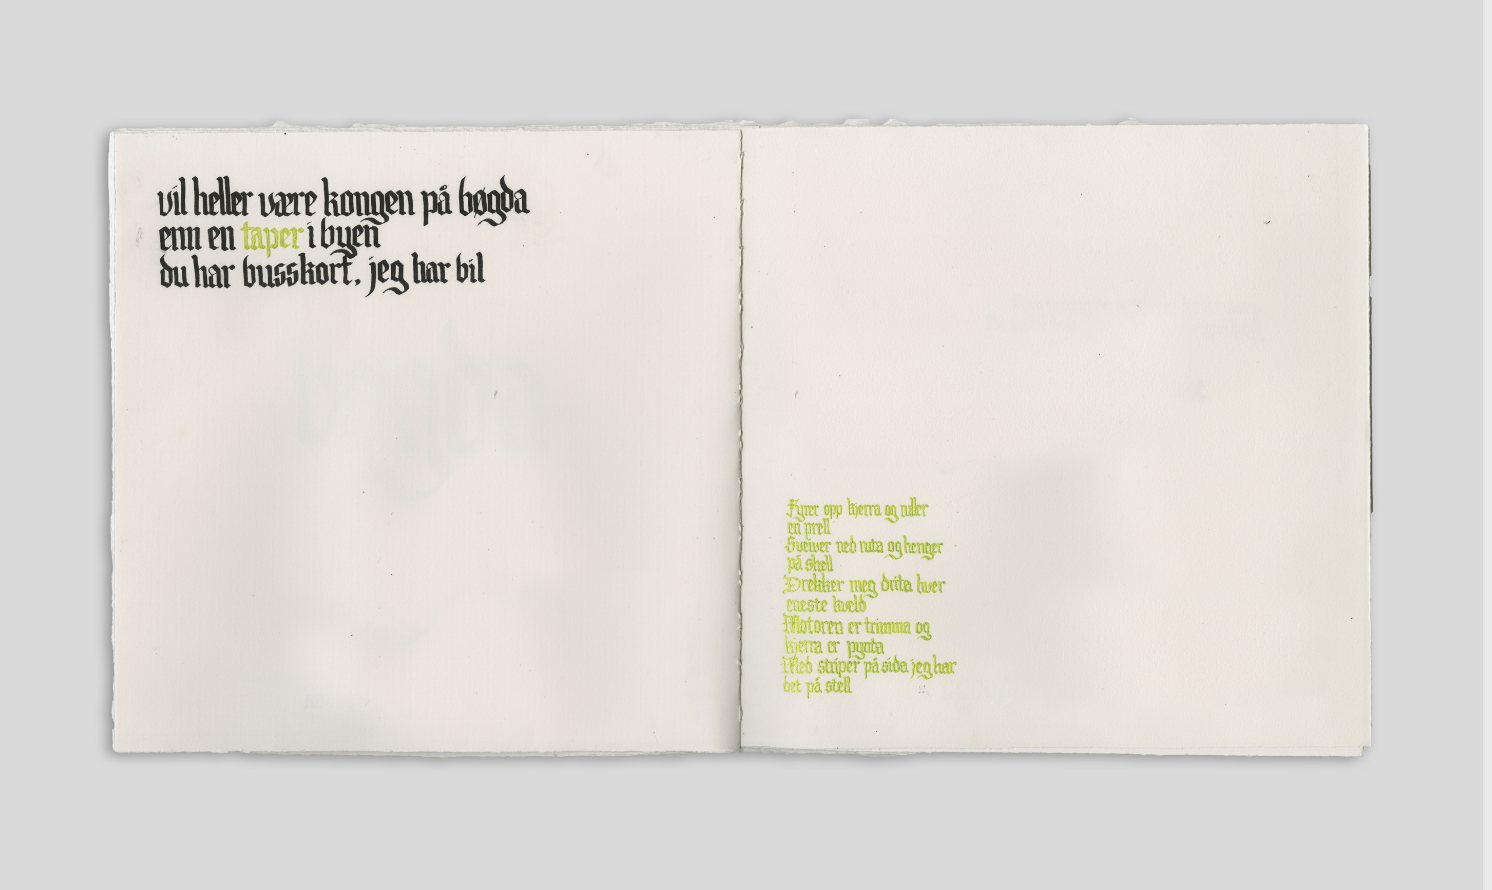 vil heller være kongen på bøgda
enn en taper i byen
du har busskort, jeg har bil
Fyrer opp kjerra og ruller
en prell
Sveiver ned ruta og henger
på shell
Drekker meg drita hver
eneste kveld
Motoren er trimma og
kjerra er pynta
Med striper på sida jeg har
det på stell